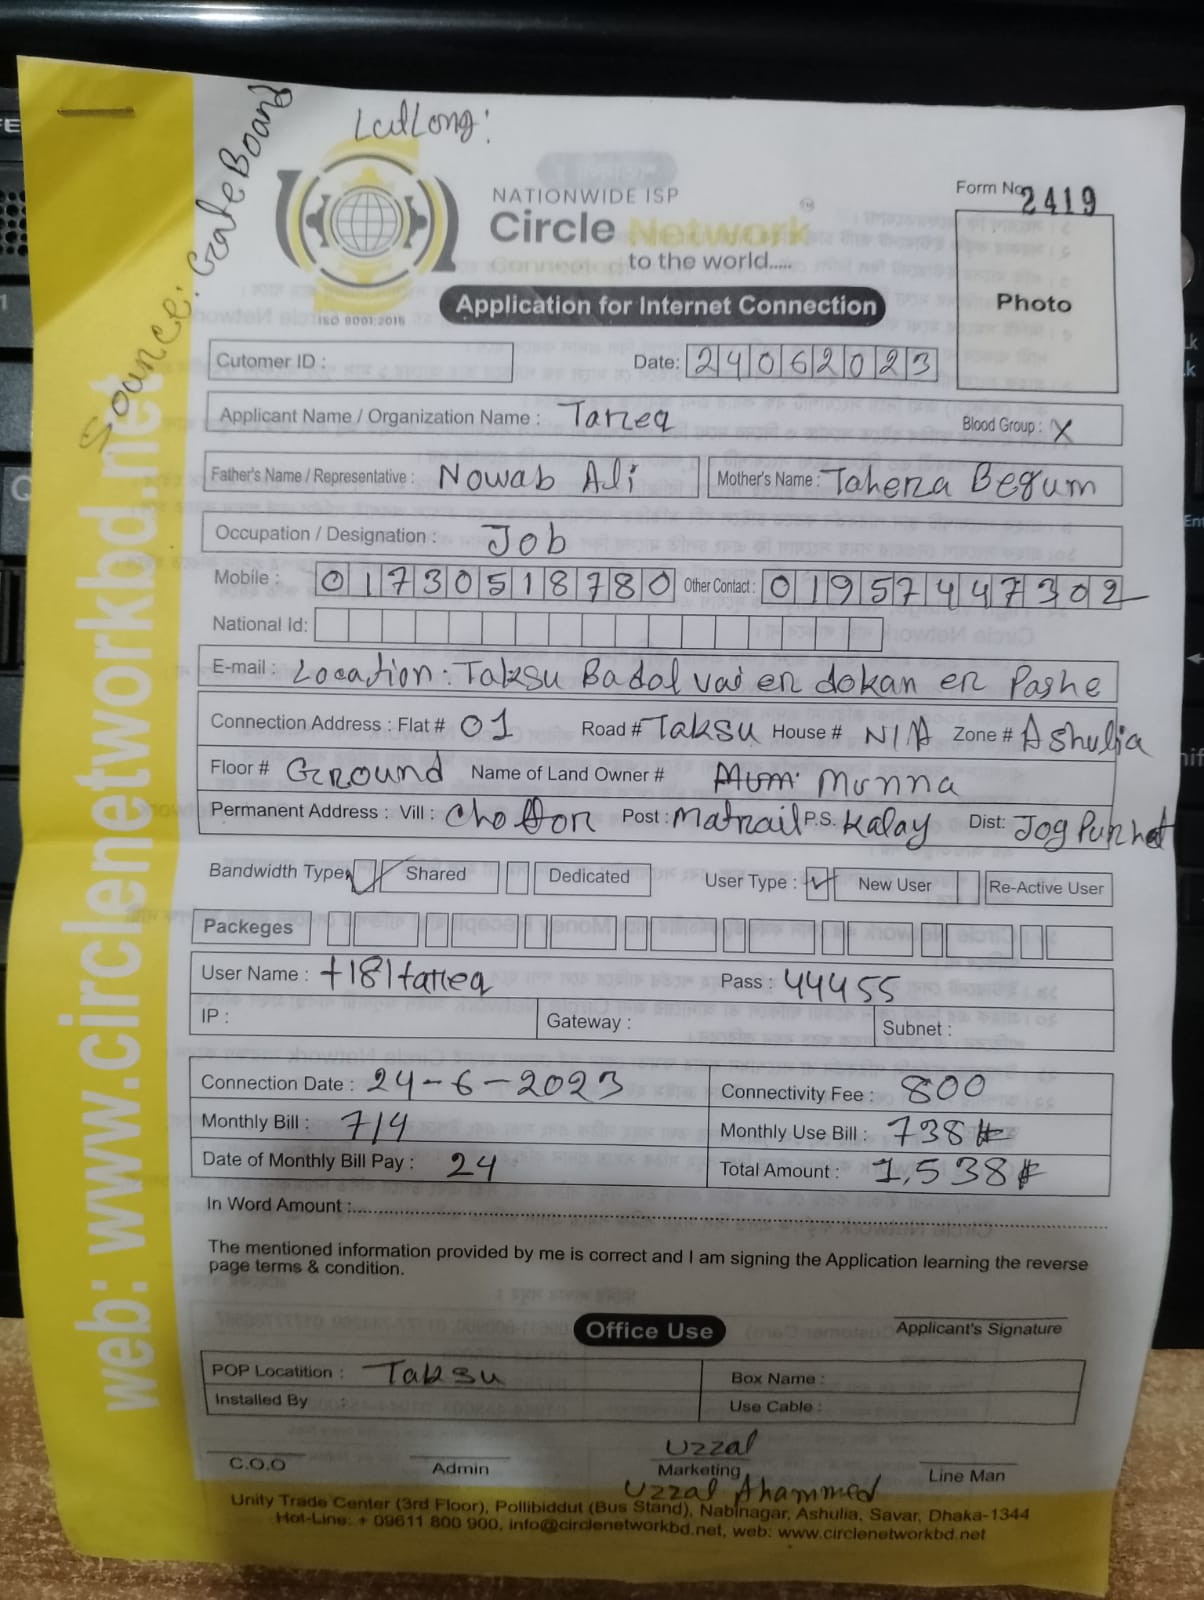 LatLong:
Source: Gate Board
NATIONWIDE ISP
Form No. 2419
Circle Network
to the world.....
ISO 9001:2015
Application for Internet Connection
Photo
Cutomer ID :
Date: 24062023
Applicant Name / Organization Name : Tareq
Blood Group : X
Father's Name / Representative : Nowab Ali Mother's Name : Tahera Begum
Occupation / Designation : Job
Mobile : 01730518780 Other Contact : 01957447302
National Id:
E-mail : Location : Taksu Badal vai er dokan er Pashe
Connection Address : Flat # 01 Road # Taksu House # N/A Zone # Ashulia
Floor # Ground Name of Land Owner # Munna
Permanent Address : Vill : Post : Matrail P.S. Kalay Dist: Joypurhat
Bandwidth Type Shared Dedicated User Type : New User Re-Active User
Packeges
User Name : t181tareq Pass : 44455
IP : Gateway : Subnet :
Connection Date : 24-6-2023 Connectivity Fee : 800
Monthly Bill : 714 Monthly Use Bill : 738
Date of Monthly Bill Pay : 24 Total Amount : 1,538
In Word Amount :
The mentioned information provided by me is correct and I am signing the Application learning the reverse
page terms & condition.
Applicant's Signature
Office Use
POP Locatition : Taksu Box Name :
Installed By Use Cable :
Uzzal
C.O.O Admin Marketing Line Man
Uzzal Ahammed
Unity Trade Center (3rd Floor), Pollibiddut (Bus Stand), Nabinagar, Ashulia, Savar, Dhaka-1344
Hot-Line: + 09611 800 900, info@circlenetworkbd.net, web: www.circlenetworkbd.net
web: www.circlenetworkbd.net